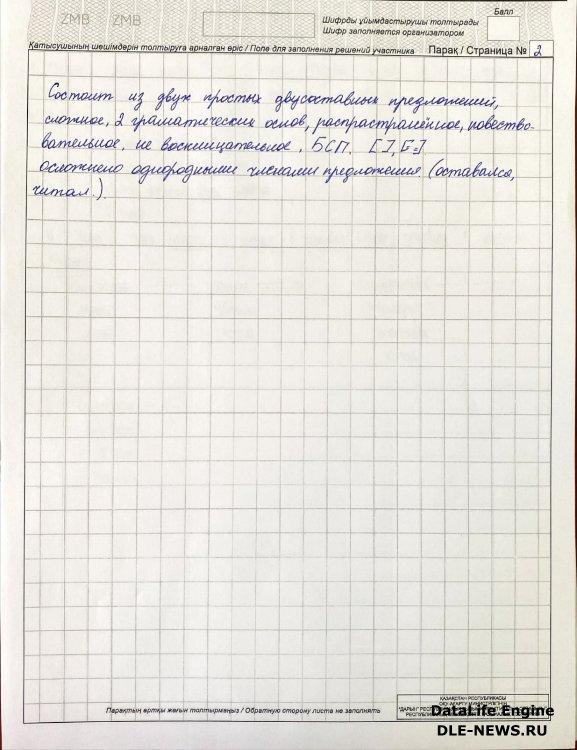 ZMB ZMB
Балл
Шифрды ұйымдастырушы толтырады
Шифр заполняется организатором
Қатысушының шешімдерін толтыруға арналған өріс / Поле для заполнения решений участника Парақ / Страница № 2
Состоит из двух простых двусоставных предложений,
сложное, 2 граматических основ, распрастранённое, повество-
вательное, не воскницательное, БСП. [ ], [ = ]
осложнено однородными членами предложения (оставался,
читал.)
Парақтың артқы жағын толтырмаңыз / Обратную сторону листа не заполнять
ҚАЗАҚСТАН РЕСПУБЛИКАСЫ
ОҚУ-АҒАРТУ МИНИСТРЛІГІНІҢ
DataLife Engine
DLE-NEWS.RU